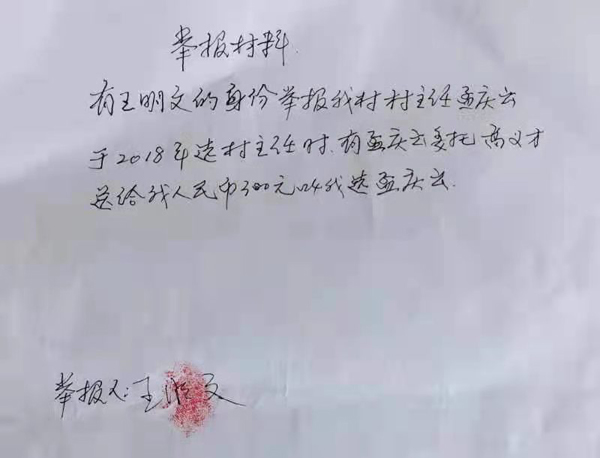 举报材料.
有王明文的身份举报我村村主任孟庆云
于2018年选村主任时.有孟庆云委托高义才
送给我人民币300元叫我选孟庆云.
举报人:王明文